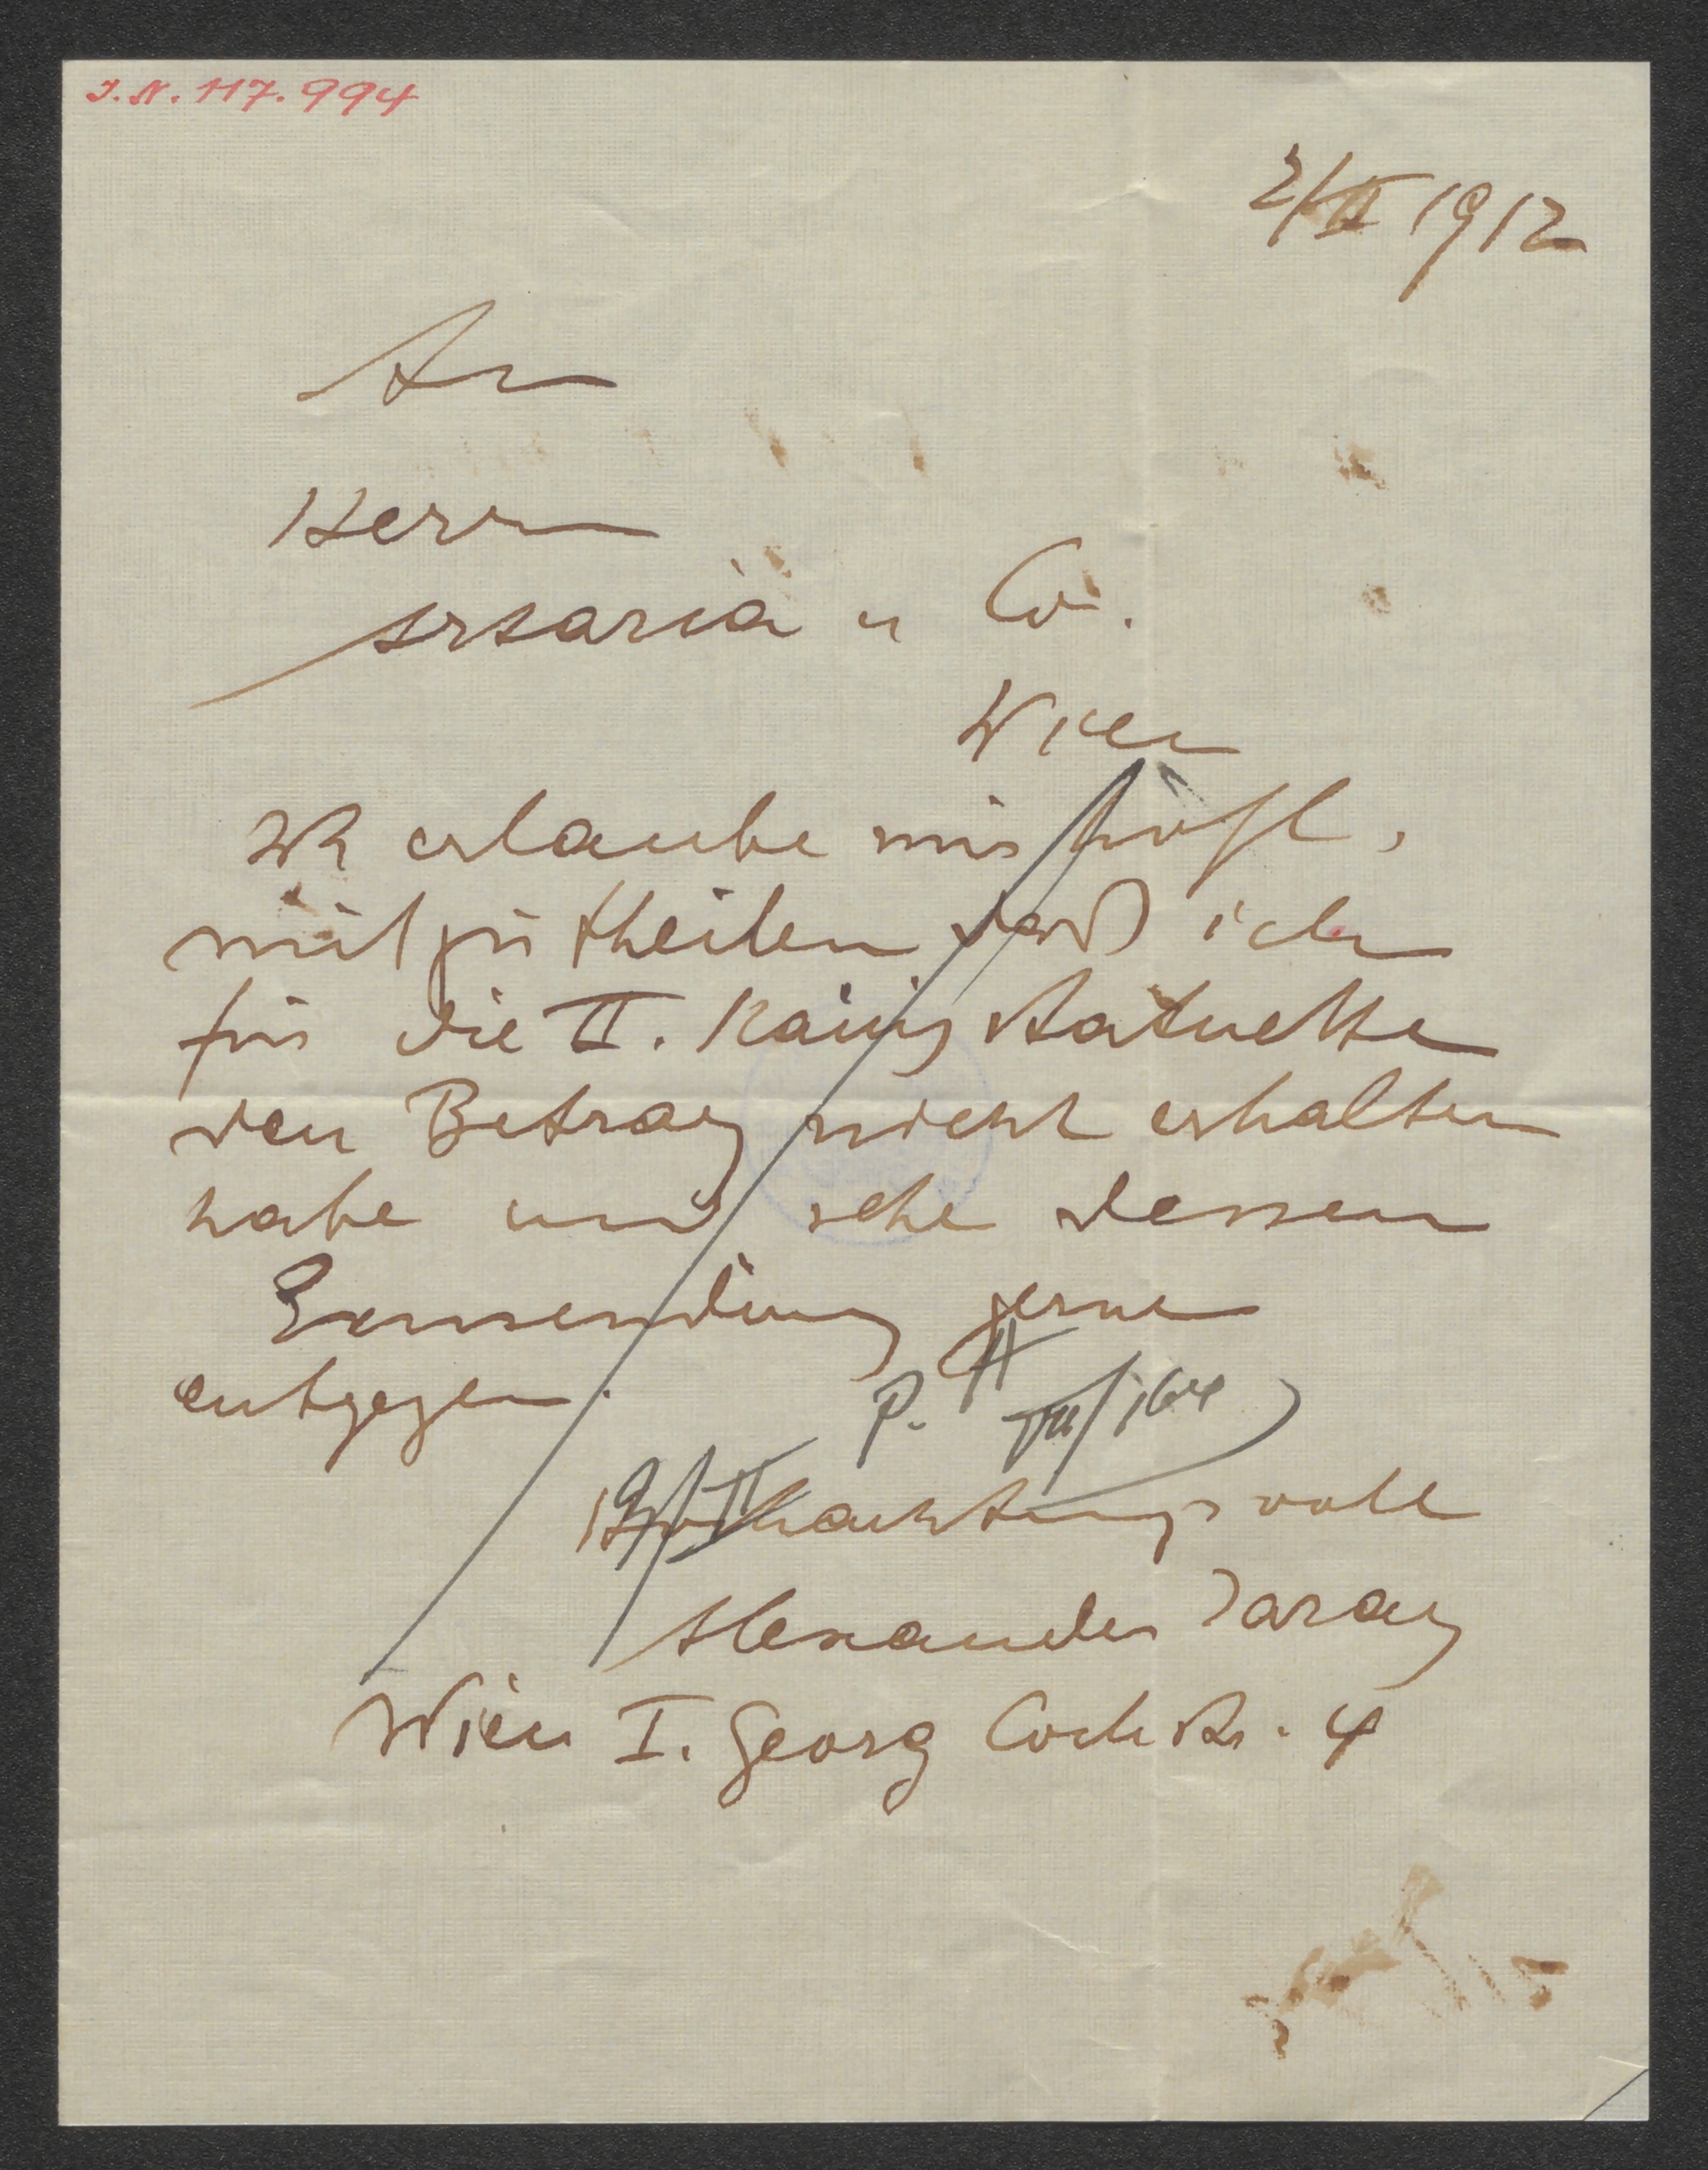 I.N. 117.994
2/II 1912
An
Herrn
Artaria u Co.
Wien
Ich erlaube mir höfl.
mitzutheilen daß ich
für die II. Kainz Statuette
den Betrag nicht erhalten
habe und sehe dessen
Einsendung gerne
entgegen.
P. VII/164
19/II
Hochachtungsvoll
Alexander Jaray
Wien I. Georg Coch Str. 4